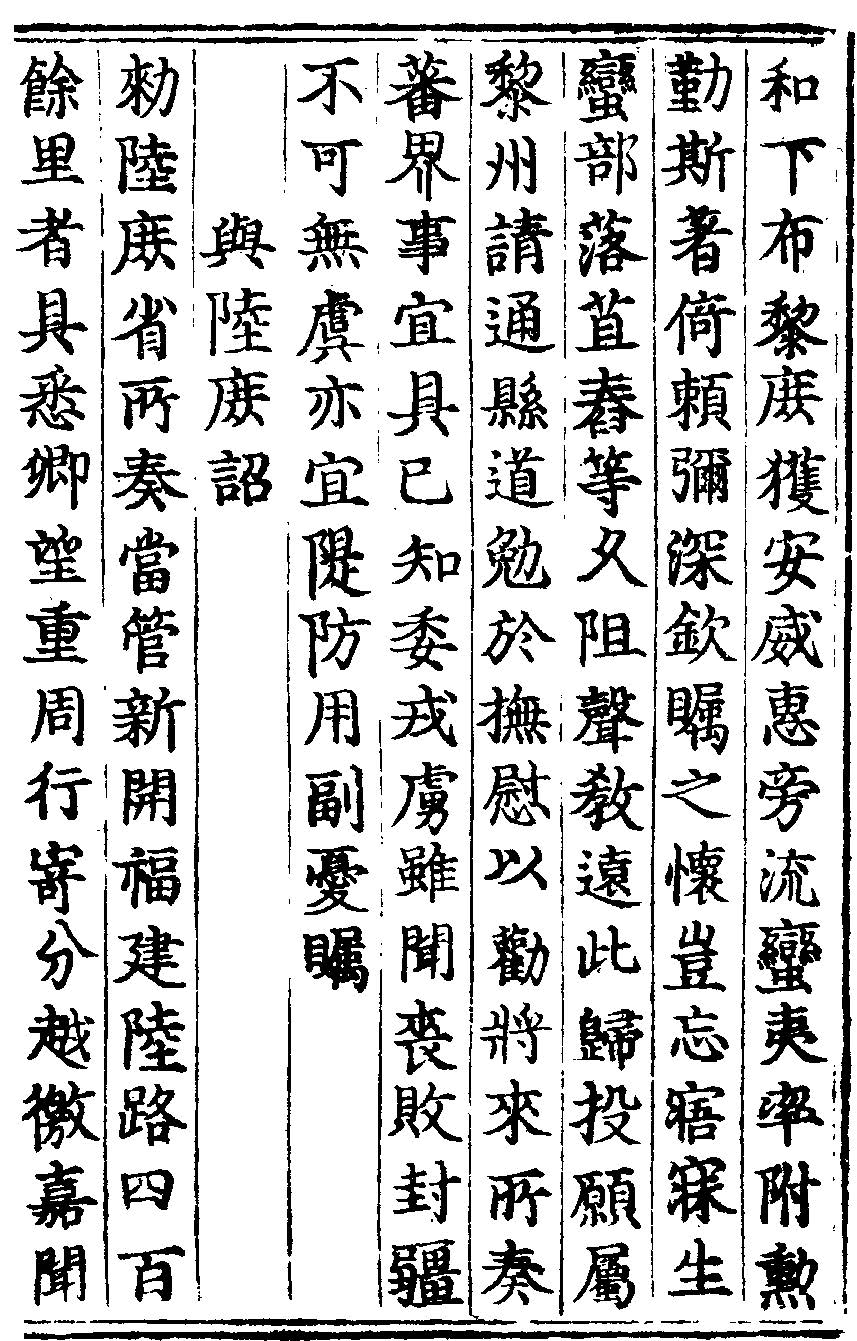 和下布黎庶獲安威惠旁流蠻夷率附勲
勤斯著倚頼彌深欽矚之懷豈忘寤寐生
蠻部落苴舂等久阻聲教遠此歸投願屬
黎州請通縣道勉於撫慰以勸將來所奏
蕃界事宜具已知委戎虜雖聞喪敗封疆
不可無虞亦宜隄防用副憂矚
與陸庶詔
勑陸庶省所奏當管新開福建陸路四百
餘里者具悉卿望重周行寄分越徼嘉聞